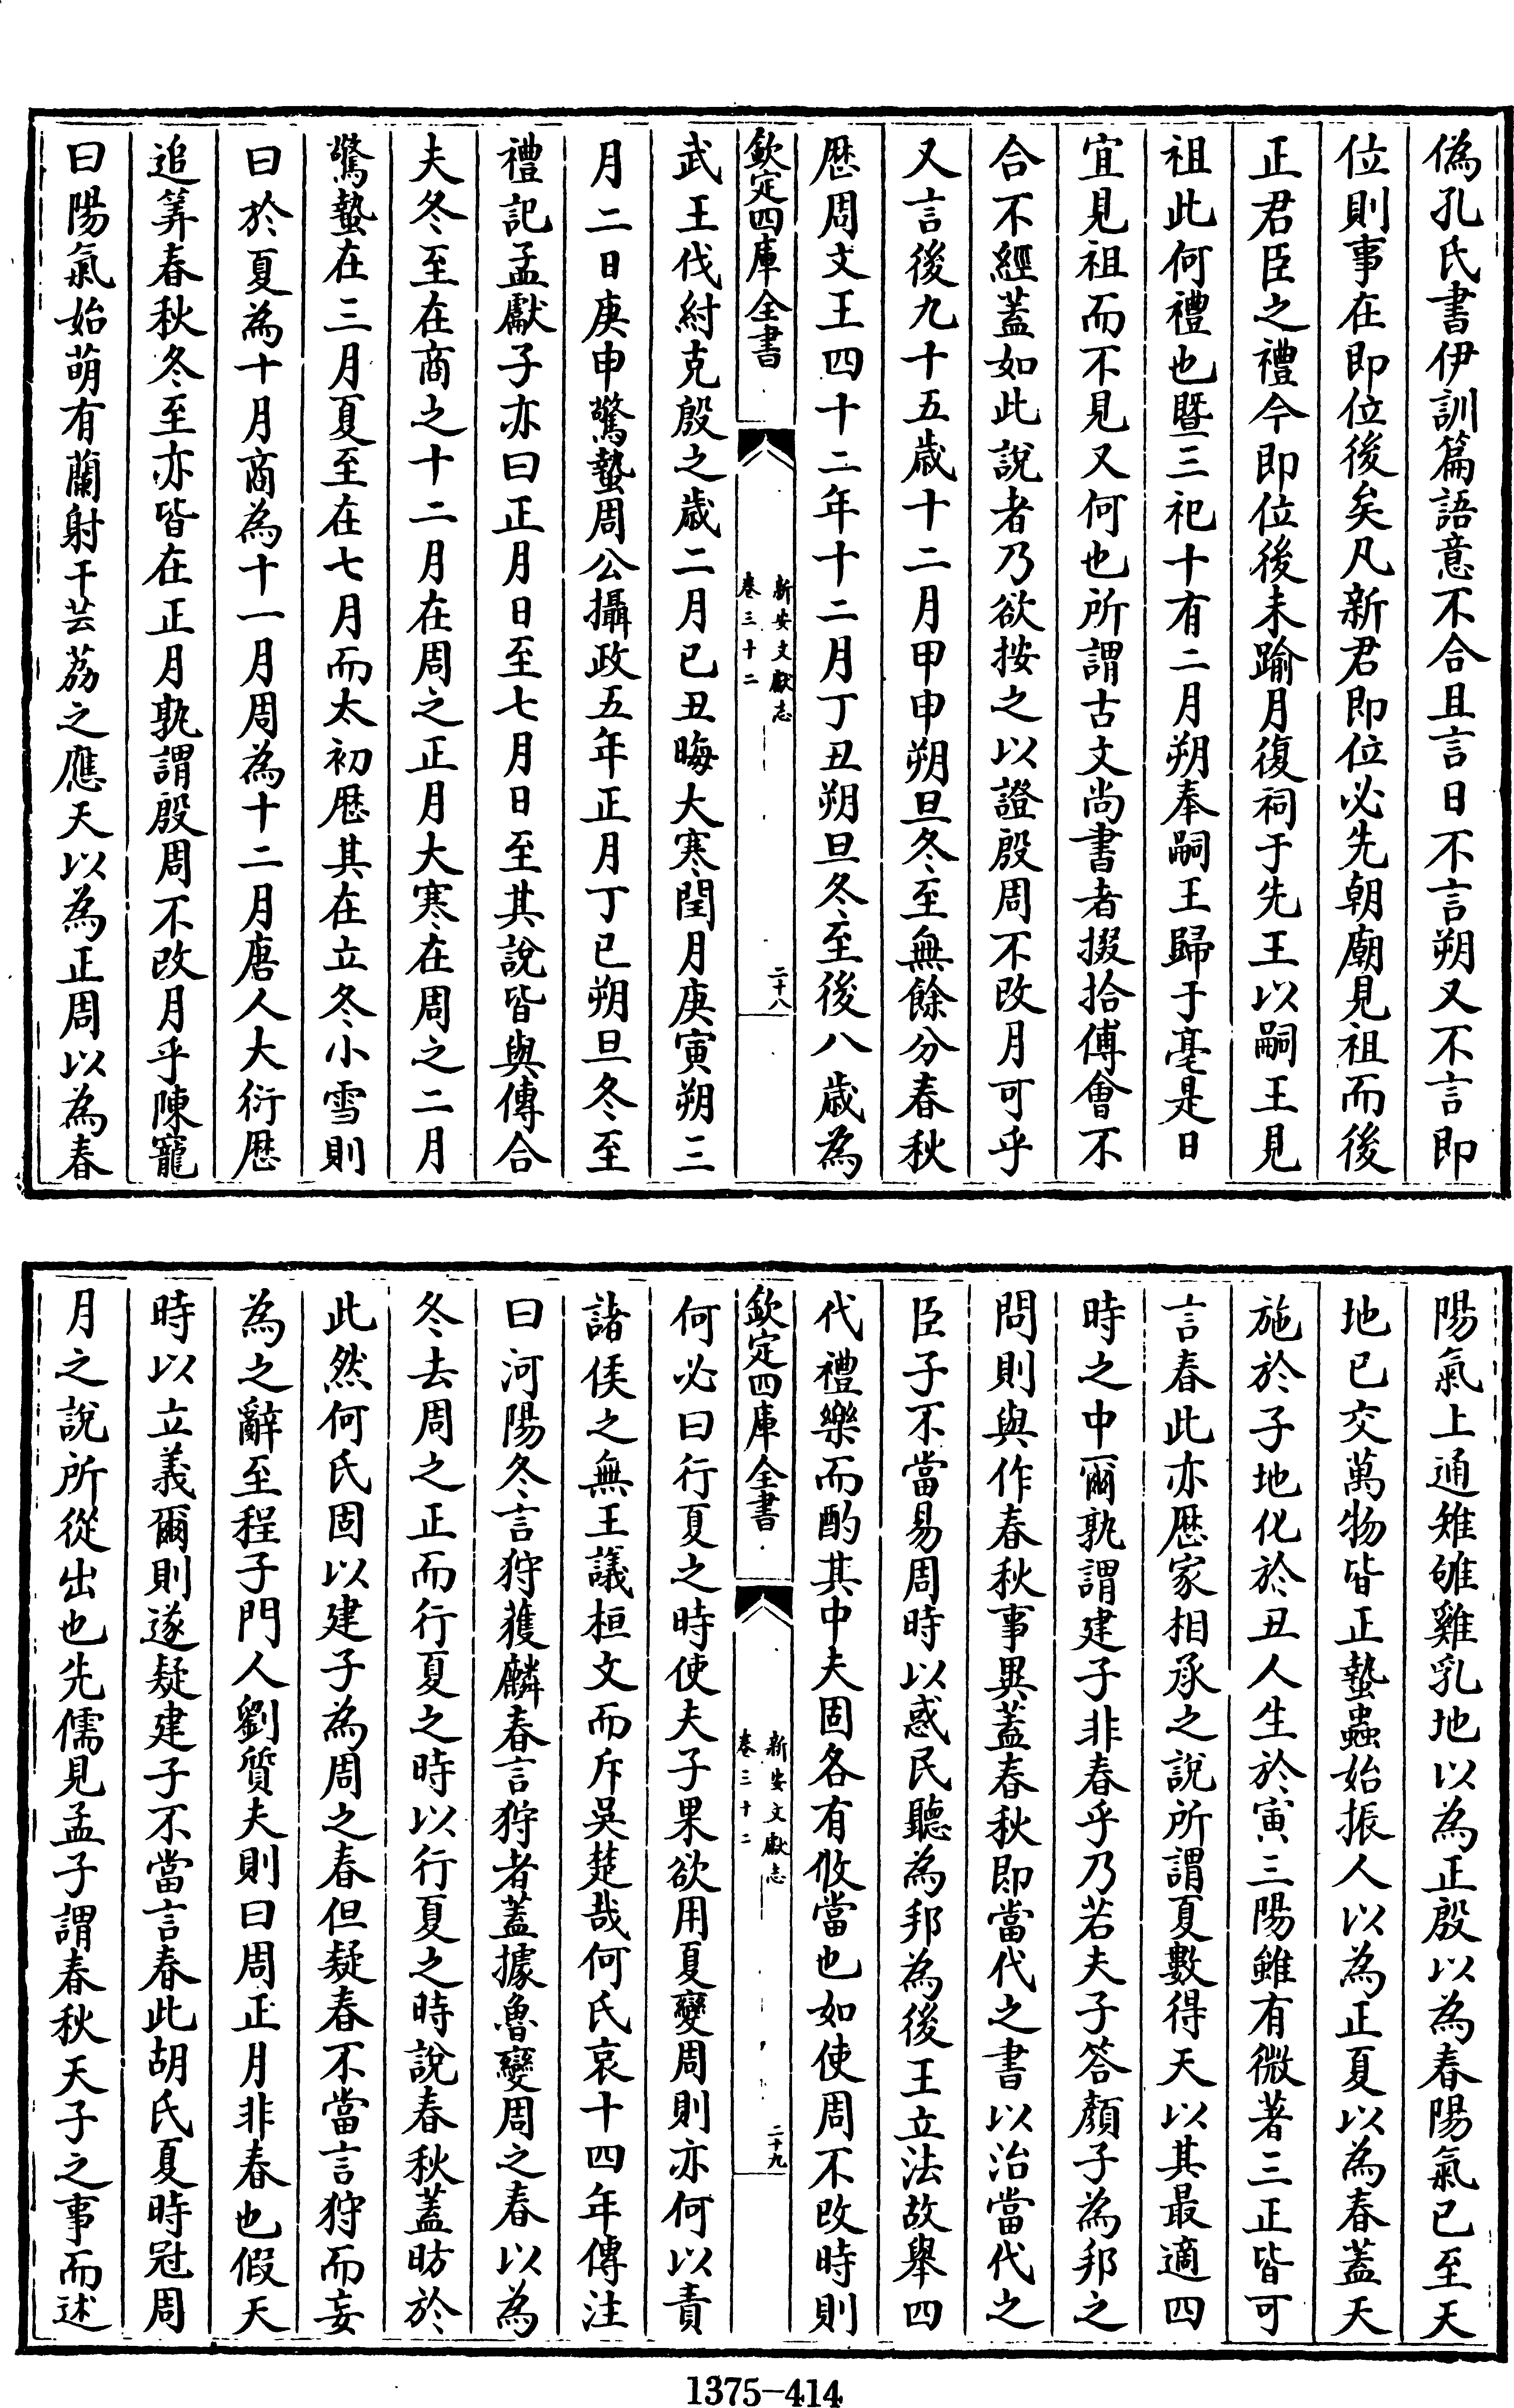 偽孔氏書伊訓篇語意不合且言日不言朔又不言即
位則事在即位後矣凡新君即位必先朝廟見祖而後
正君臣之禮今即位後未踰月復祠于先王以嗣王見
祖此何禮也暨三祀十有二月朔奉嗣王歸于亳是日
宜見祖而不見又何也所謂古文尚書者掇拾傅會不
合不經蓋如此說者乃欲按之以證殷周不改月可乎
又言後九十五歲十二月甲申朔旦冬至無餘分春秋
歴周文王四十二年十二月丁丑朔旦冬至後八歲為
欽定四庫全書
新安文獻志
卷三十二
二十八
武王伐紂克殷之歲二月已丑晦大寒閏月庚寅朔三
月二日庚申驚蟄周公攝政五年正月丁已朔旦冬至
禮記孟獻子亦曰正月日至七月日至其說皆與傳合
夫冬至在商之十二月在周之正月大寒在周之二月
驚蟄在三月夏至在七月而太初歴其在立冬小雪則
曰於夏為十月商為十一月周為十二月唐人大衍歴
追筭春秋冬至亦皆在正月孰謂殷周不改月乎陳寵
曰陽氣始萌有蘭射干芸荔之應天以為正周以為春
陽氣上通雉雊雞乳地以為正殷以為春陽氣已至天
地已交萬物皆正蟄蟲始振人以為正夏以為春蓋天
施於子地化於丑人生於寅三陽雖有微著三正皆可
言春此亦歴家相承之說所謂夏數得天以其最適四
時之中爾孰謂建子非春乎乃若夫子答顏子為邦之
問則與作春秋事異蓋春秋即當代之書以治當代之
臣子不當易周時以惑民聽為邦為後王立法故舉四
代禮樂而酌其中夫固各有攸當也如使周不改時則
欽定四庫全書
新安文獻志
卷三十二
二十九
何必曰行夏之時使夫子果欲用夏變周則亦何以責
諸侯之無王議桓文而斥吳楚哉何氏哀十四年傳注
曰河陽冬言狩獲麟春言狩者蓋據魯變周之春以為
冬去周之正而行夏之時以行夏之時說春秋蓋昉於
此然何氏固以建子為周之春但疑春不當言狩而妄
為之辭至程子門人劉質夫則曰周正月非春也假天
時以立義爾則遂疑建子不當言春此胡氏夏時冠周
月之說所從出也先儒見孟子謂春秋天子之事而述
1375-414